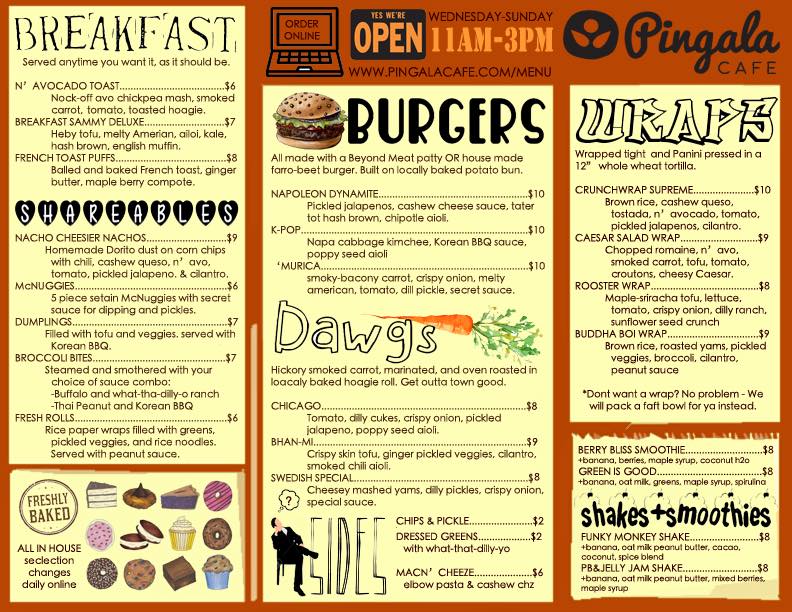 BREAKFAST
Served anytime you want it, as it should be.
N' AVOCADO TOAST...............................$6
Nock-off avo chickpea mash, smoked
carrot, tomato, toasted hoagie.
BREAKFAST SAMMY DELUXE...................$7
Heby tofu, melty Amerian, ailoi, kale,
hash brown, english muffin.
FRENCH TOAST PUFFS.............................$8
Balled and baked French toast, ginger
butter, maple berry compote.
SHAREABLES
NACHO CHEESIER NACHOS......................$9
Homemade Dorito dust on corn chips
with chili, cashew queso, n' avo,
tomato, pickled jalapeno. & cilantro.
McNUGGIES...........................................$6
5 piece setain McNuggies with secret
sauce for dipping and pickles.
DUMPLINGS...........................................$7
Filled with tofu and veggies. served with
Korean BBQ.
BROCCOLI BITES.....................................$7
Steamed and smothered with your
choice of sauce combo:
-Buffalo and what-tha-dilly-o ranch
-Thai Peanut and Korean BBQ
FRESH ROLLS..........................................$6
Rice paper wraps filled with greens,
pickled veggies, and rice noodles.
Served with peanut sauce.
FRESHLY
BAKED
ALL IN HOUSE
seclection
changes
daily online
ORDER
ONLINE
YES WE'RE
OPEN
WEDNESDAY-SUNDAY
11AM-3PM
WWW.PINGALACAFE.COM/MENU
Pingala
CAFE
BURGERS
All made with a Beyond Meat patty OR house made
farro-beet burger. Built on locally baked potato bun.
NAPOLEON DYNAMITE......................................$10
Pickled jalapenos, cashew cheese sauce, tater
tot hash brown, chipotle aioli.
K-POP...............................................................$10
Napa cabbage kimchee, Korean BBQ sauce,
poppy seed aioli
'MURICA...........................................................$10
smoky-bacony carrot, crispy onion, melty
american, tomato, dill pickle, secret sauce.
Dawgs
Hickory smoked carrot, marinated, and oven roasted in
loacaly baked hoagie roll. Get outta town good.
CHICAGO..........................................................$8
Tomato, dilly cukes, crispy onion, pickled
jalapeno, poppy seed aioli.
BHAN-MI...........................................................$9
Crispy skin tofu, ginger pickled veggies, cilantro,
smoked chili aioli.
SWEDISH SPECIAL..............................................$8
Cheesey mashed yams, dilly pickles, crispy onion,
special sauce.
?
SIDES
CHIPS & PICKLE................$2
DRESSED GREENS..............$2
with what-that-dilly-yo
MACN' CHEEZE................$6
elbow pasta & cashew chz
WRAPS
Wrapped tight and Panini pressed in a
12" whole wheat tortilla.
CRUNCHWRAP SUPREME.......................$10
Brown rice, cashew queso,
tostada, n' avocado, tomato,
pickled jalapenos, cilantro.
CAESAR SALAD WRAP...........................$9
Chopped romaine, n' avo,
smoked carrot, tofu, tomato,
croutons, cheesy Caesar.
ROOSTER WRAP.....................................$8
Maple-sriracha tofu, lettuce,
tomato, crispy onion, dilly ranch,
sunflower seed crunch
BUDDHA BOI WRAP..............................$9
Brown rice, roasted yams, pickled
veggies, broccoli, cilantro,
peanut sauce
*Dont want a wrap? No problem - We
will pack a faft bowl for ya instead.
BERRY BLISS SMOOTHIE.........................$8
+banana, berries, maple syrup, coconut h2o
GREEN IS GOOD..................................$8
+banana, oat milk, greens, maple syrup, spirulina
shakes+smoothies
FUNKY MONKEY SHAKE.......................$8
+banana, oat milk peanut butter, cacao,
coconut, spice blend
PB&JELLY JAM SHAKE..........................$8
+banana, oat milk peanut butter, mixed berries,
maple syrup